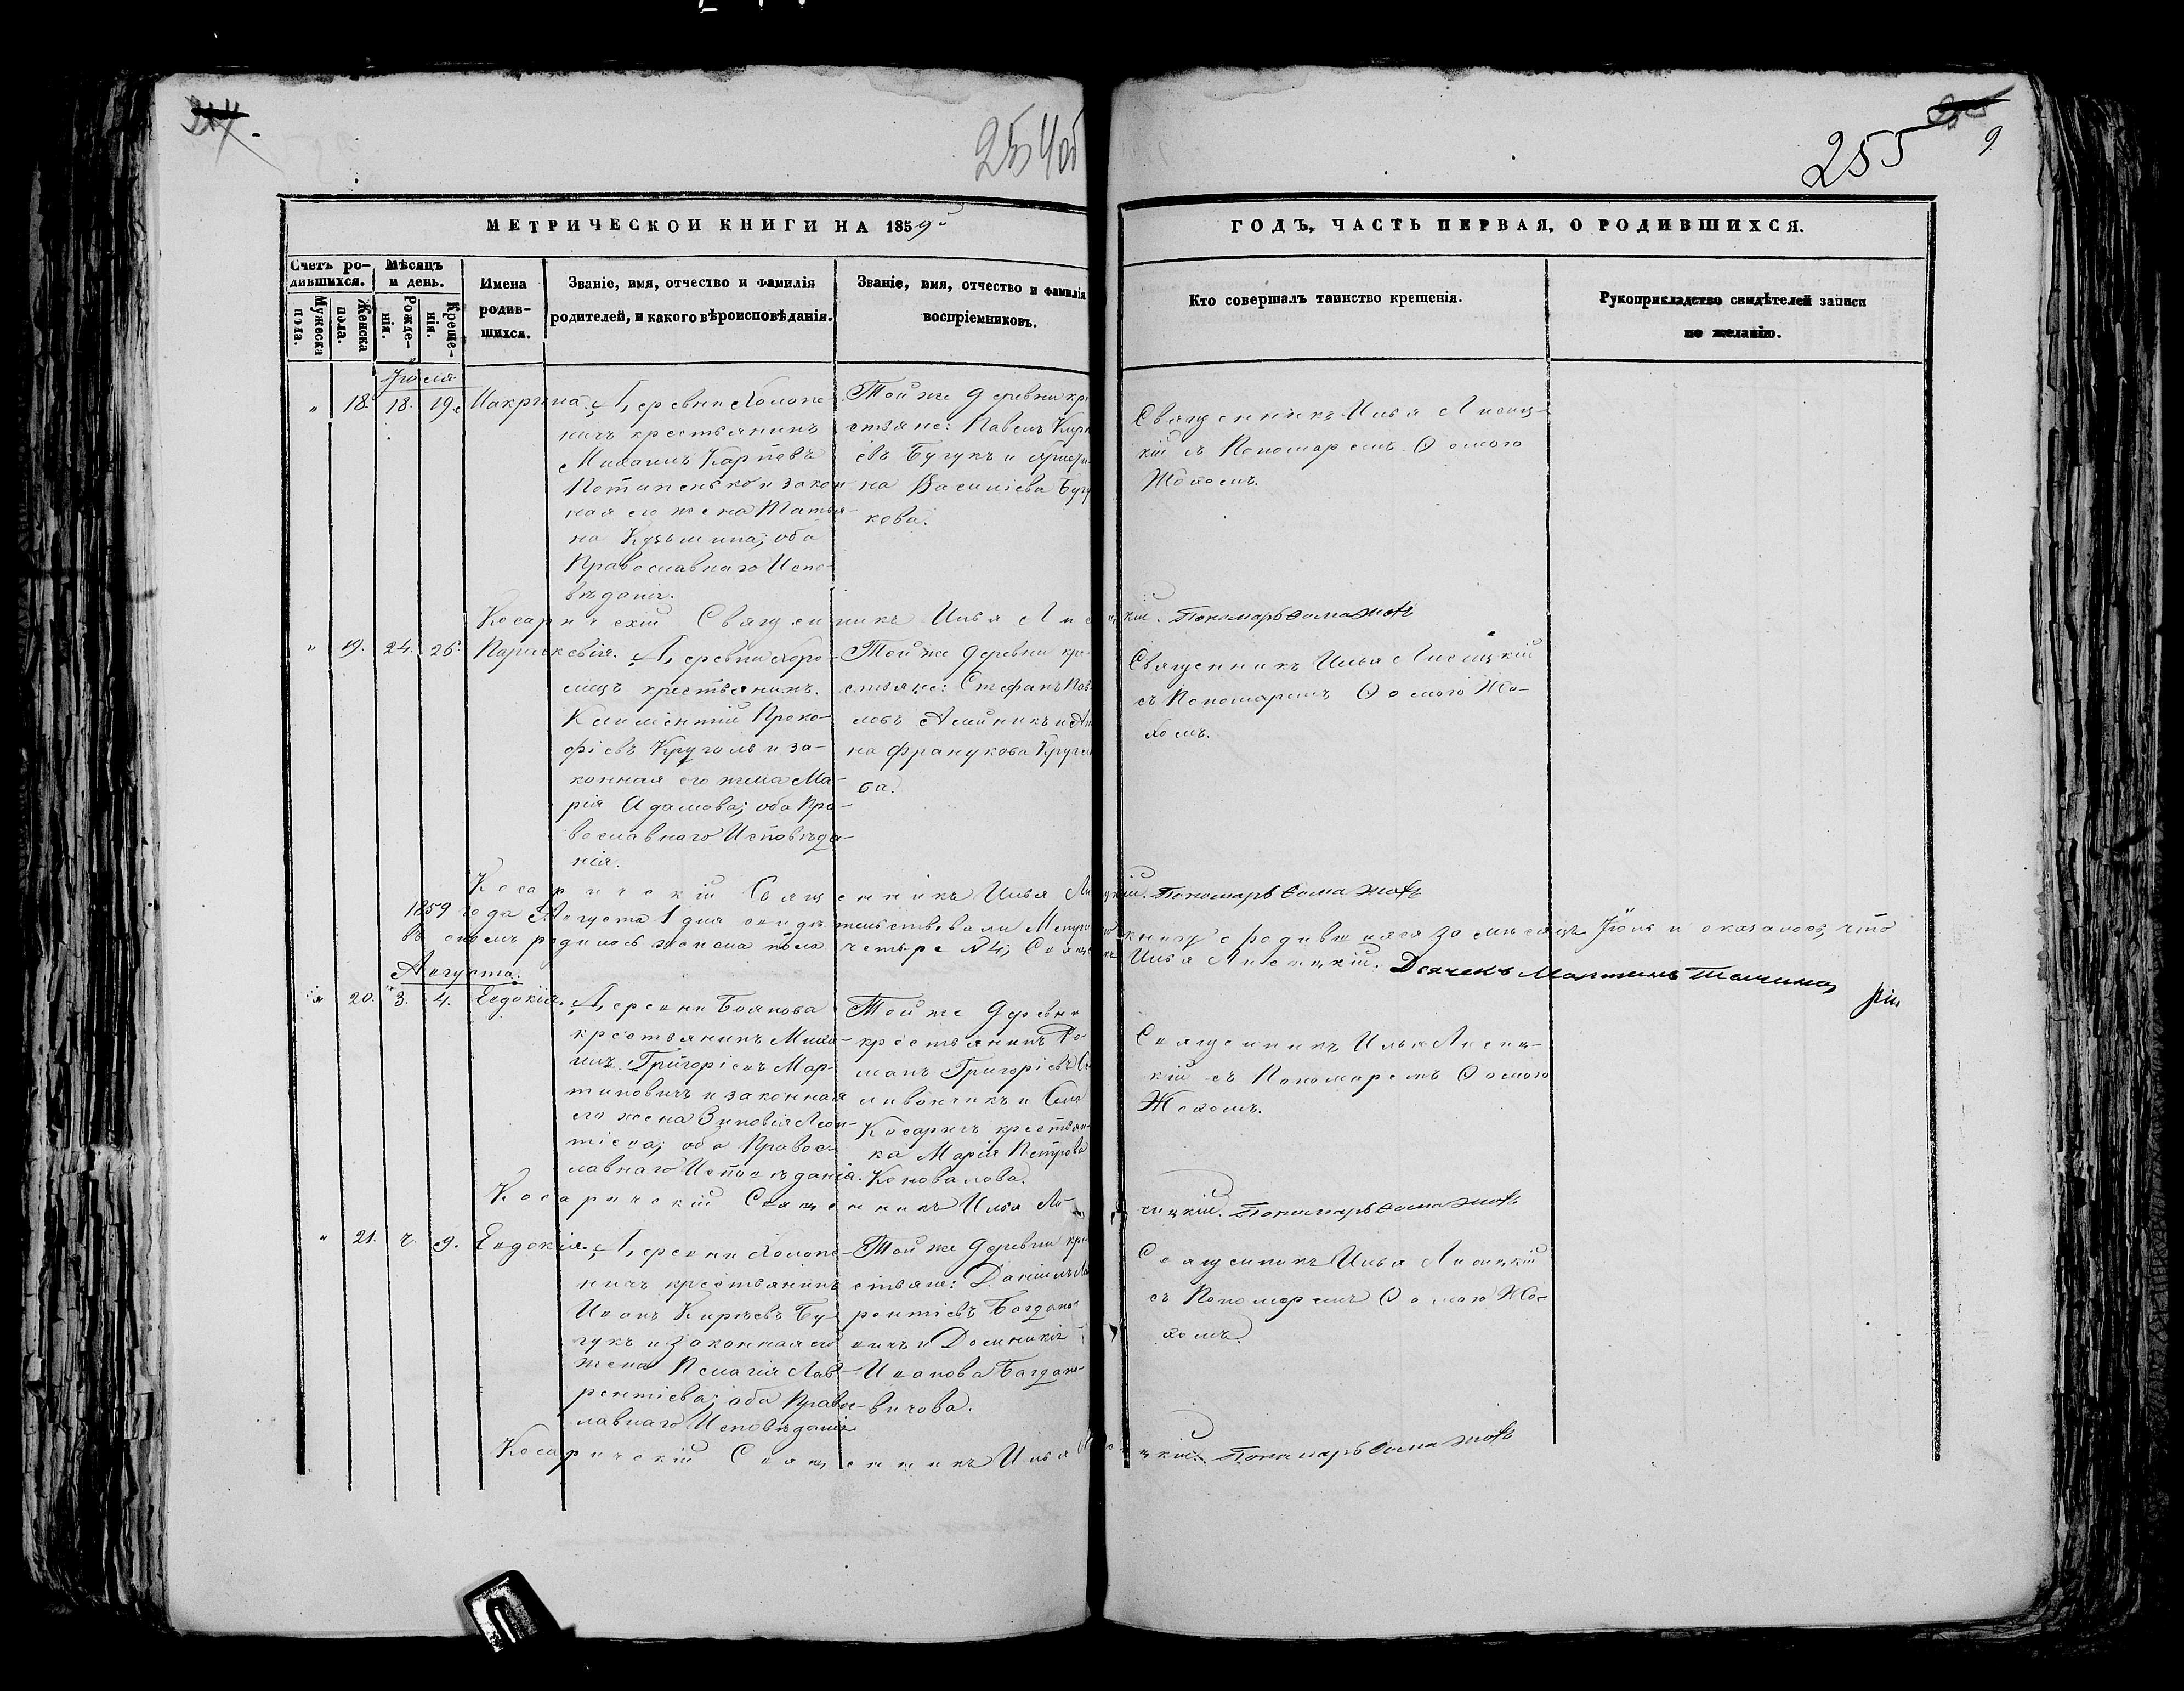 254об
255
9
МЕТРИЧЕСКОЙ КНИГИ НА 1859й
ГОДЪ, ЧАСТЬ ПЕРВАЯ, О РОДИВШИХСЯ.
Счетъ ро-
дившихся.
Мужеска
пола.
Женска
пола.
Мѣсяцъ
и день.
Рожде-
нія.
Креще-
нія.
Имена
родив-
шихся.
Званіе, имя, отчество и фамилія
родителей, и какого вѣроисповѣданія.
Званіе, имя, отчество и фамилія
воспріемниковъ.
Кто совершалъ таинство крещенія.
Рукоприкладство свидѣтелей записи
по желанію.
Іюля
" 18. 18. 19. Макрина.
Деревни Холопе-
ничъ крестьянинъ
Михаилъ Карповъ
Потапенько и закон-
ная его жена Татья-
на Кузьмина; оба
Православнаго Испо-
вѣданія.
Той же деревни кре
стьяне: Павелъ
евъ Бугукъ и
на Василіева Бугу
кова.
Священникъ Илья Лисиц-
кій съ Пономаремъ Ѳомою
Жохомъ.
Косаричскій Священникъ Илья Лисицкій. Пономарь Ѳома Жохъ
" 19. 24. 26. Параскевія.
Деревни Хоро-
мецъ крестьянинъ
Климентій Проко-
фіевъ Круголь и за-
конная его жена Ма-
рія Адамова; оба Пра-
вославнаго Исповѣда-
нія.
Той же деревни кре-
стьяне: Стефанъ Пав
ловъ Алейникъ и Ан
на Францукова Кругле
ва.
Священникъ Илья Лисицкій
съ Пономаремъ Ѳомою Жо-
хомъ.
Косаричскій Священникъ Илья Лисицкій. Пономарь Ѳома Жохъ
1859 года Августа 1 дня свидѣтельствовали Метричe книгу о родившихся за мѣсяцъ Іюль и оказалось, что
въ ономъ родилось женска пола четыре № 4, Священникъ Илья Лисицкій. Дьячекъ Мартинъ
Августа.
" 20. 3. 4. Евдокія.
Деревни Боянова
крестьянинъ Миха-
илъ Григоріевъ Мар-
тиновичъ и законная
его жена Зиновія Леон-
тіева; оба Правос-
лавнаго Исповѣданія.
Той же деревни
крестьянинъ Ро-
манъ Григоріевъ Се
ливончикъ и Села
Косаричъ крестьян-
ка Марія Петрова
Коновалова.
Священникъ Илья Лисиц-
кій съ Пономаремъ Ѳомою
Жохомъ.
Косаричскій Священникъ Илья Лисицкій. Пономарь Ѳома Жохъ
" 21. 9. Евдокія.
Деревни Холопе-
ничъ крестьянинъ
Иванъ Кирѣевъ Бу-
гукъ и законная его
жена Пелагія Лав-
рентіева; оба Правос-
лавнаго Исповѣданія
Той же деревни кре-
стьяне: Даніилъ Лав
рентіевъ Богдано-
вичъ и Доминикія
Иванова Богдано-
вичова.
Священникъ Илья Лисицкій
съ Пономаремъ Ѳомою Жо-
хомъ.
Косаричскій Священникъ Илья Лисицкій. Пономарь Ѳома Жохъ